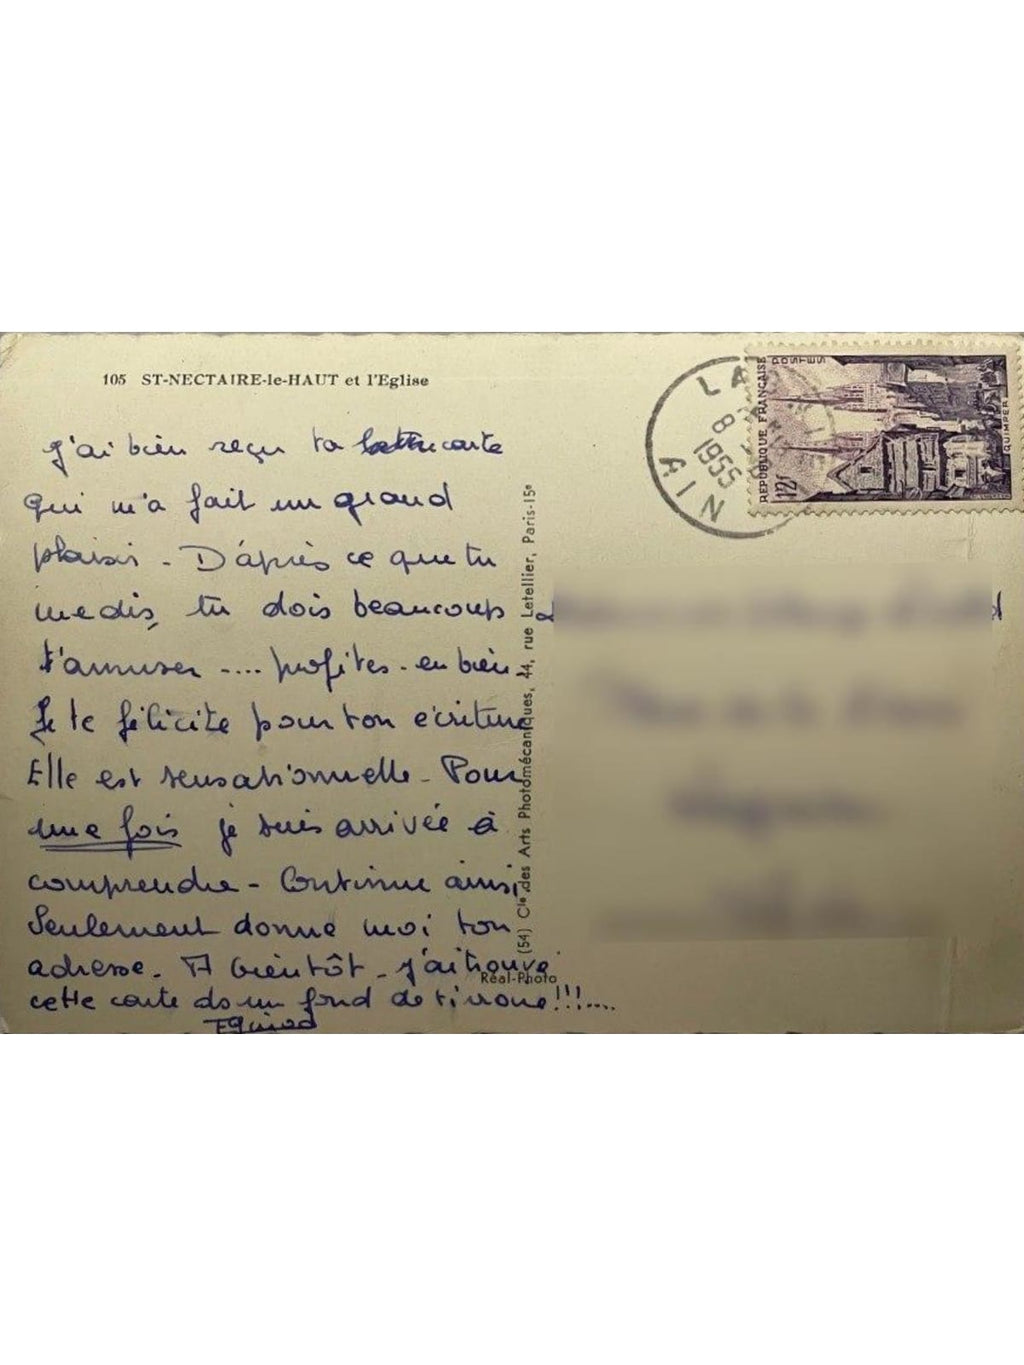 105 ST-NECTAIRE-le-HAUT et l'Eglise
J'ai bien reçu ta carte
Qui m'a fait un grand
plaisir - D'après ce que tu
me dis, tu dois beaucoup
t'amuser .... profites - en bien -
Je te félicite pour ton écriture
Elle est sensationnelle - Pour
une fois je suis arrivée à
comprendre - Continue ainsi
Seulement donne moi ton
adresse. A bientôt - j'ai trouvé
cette carte ds un fond de tiroir !!!....
(54) Cie des Arts Photomécaniques, 44, rue Letellier, Paris-15e
Réal-Photo
LA
8
1955
AIN
POSTES
REPUBLIQUE FRANÇAISE
12f
QUIMPER